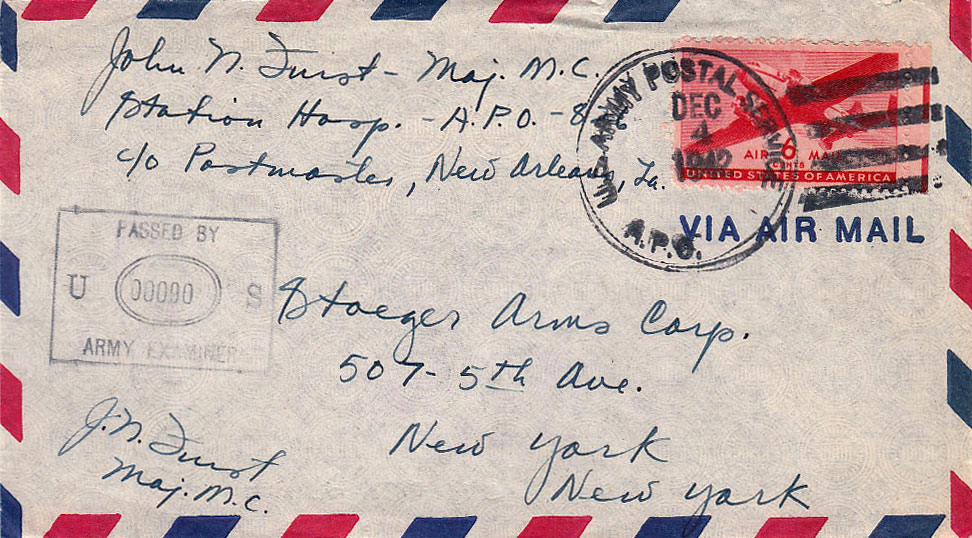 John N. Furst - Maj. M.C.
Station Hosp. - A.P.O. -
c/o Postmaster, New Orleans, La.
U.S. ARMY POSTAL SERVICE
DEC
4
1942
A.P.O.
AIR 6 MAIL
CENTS
UNITED STATES OF AMERICA
VIA AIR MAIL
PASSED BY
U 00090 S
ARMY EXAMINER
Stoeger Arms Corp.
507 - 5th Ave.
New York
New York
J.N. Furst
Maj. M.C.